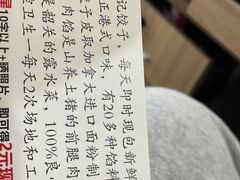 记饺子，每天即时现包新鲜
正港式口味，有20多种馅料
子皮取加拿大进口面粉制
肉馅是山养土猪的前腿肉
是韶关的露水菜，100%
卫生一每天2次场地和工
10字以上+晒照片，即可得2元现